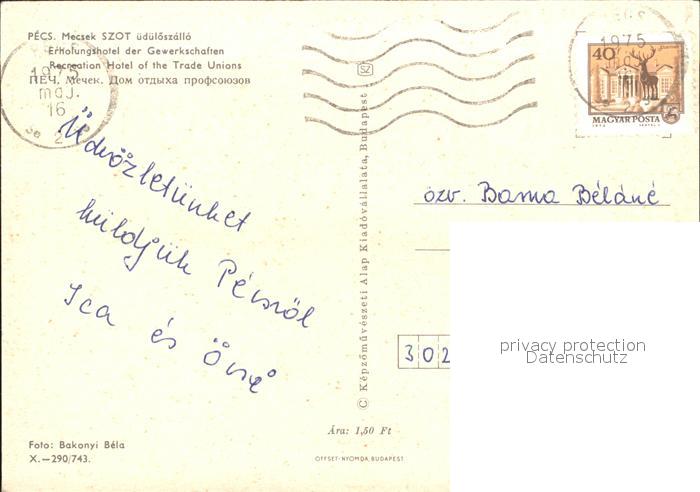 PÉCS. Mecsek SZOT üdülőszálló
Erholungshotel der Gewerkschaften
Recreation Hotel of the Trade Unions
ПЕЧ. Мечек. Дом отдыха профсоюзов
1975
máj.
16
Üdvözletünket
küldjük Pécsről
Ica és
Foto: Bakonyi Béla
X.—290/743.
© Képzőművészeti Alap Kiadóvállalata, Budapest
SZ
Ára: 1,50 Ft
OFFSET-NYOMDA, BUDAPEST
1975
40
MAGYAR POSTA
özv. Barna Béláné
302
privacy protection
Datenschutz